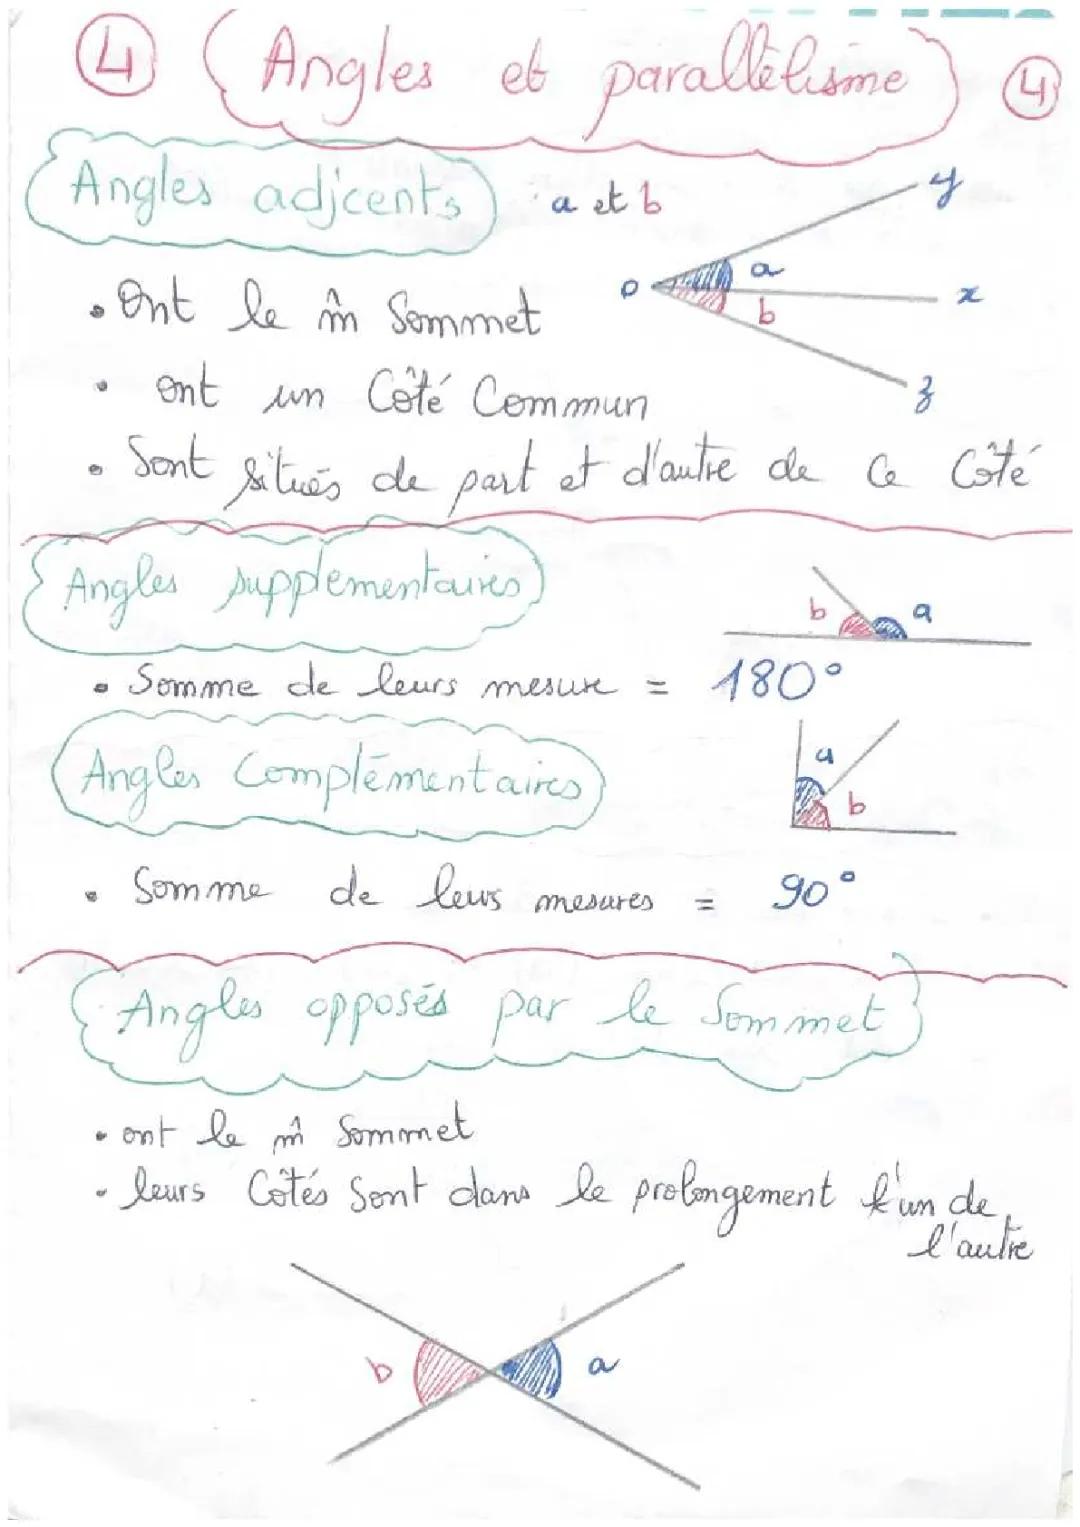 4 Angles et parallélisme 4
Angles adjcents a et b
y
o a x
b
z
• Ont le m̂ Sommet
• ont un Côté Commun
• Sont situés de part et d'autre de ce Côté
Angles supplémentaires
b a
• Somme de leurs mesure = 180°
Angles Complémentaires
a
b
• Somme de leus mesures = 90°
Angles opposés par le Sommet
• ont le m̂ Sommet
• leurs Côtés Sont dans le prolongement l'un de
l'autre
b a